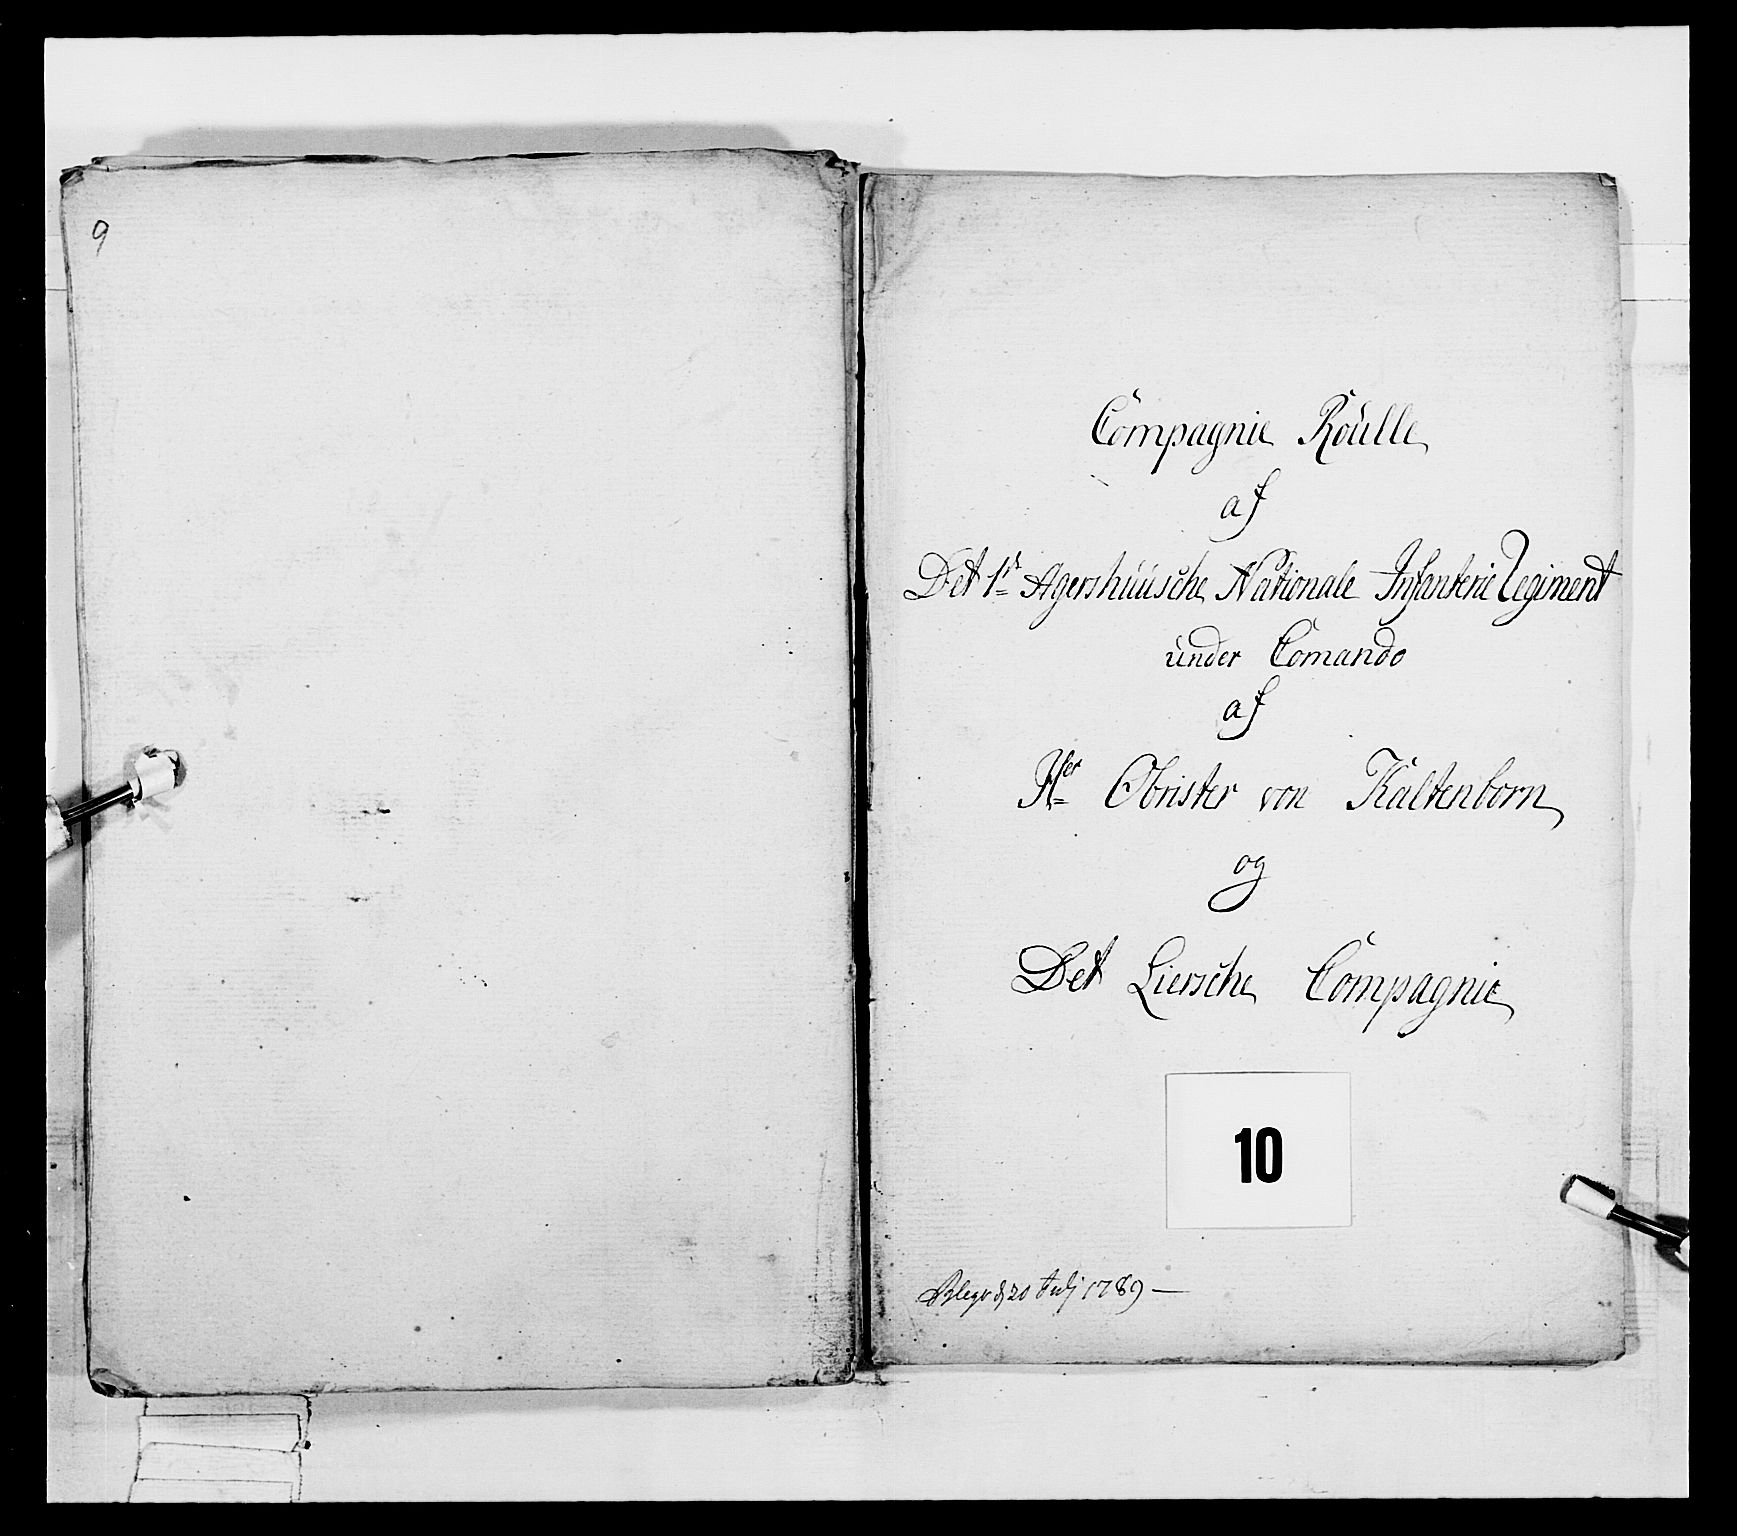 9
Compagnie Roulle
af
Det 1ste Agershuusche Nationale Infanterie Regiment
under Comando
af
Her Obrister von Kaltenborn
og
Det Liersche Compagnie
10
20 Julj 1789